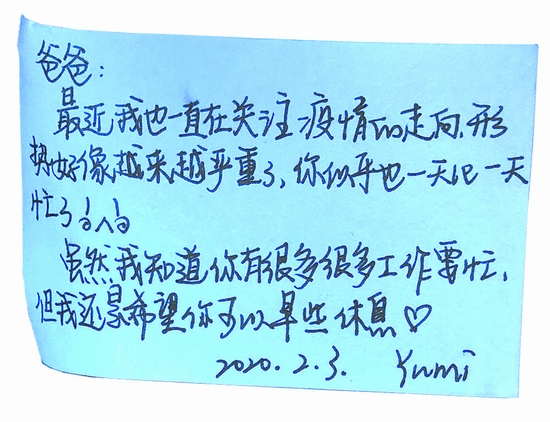 爸爸：
最近我也一直在关注疫情的走向,形
势好像越来越严重了,你似乎也一天比一天
忙了
虽然我知道你有很多很多工作要忙,
但我还是希望你可以早些休息♡
2020.2.3. Yumi